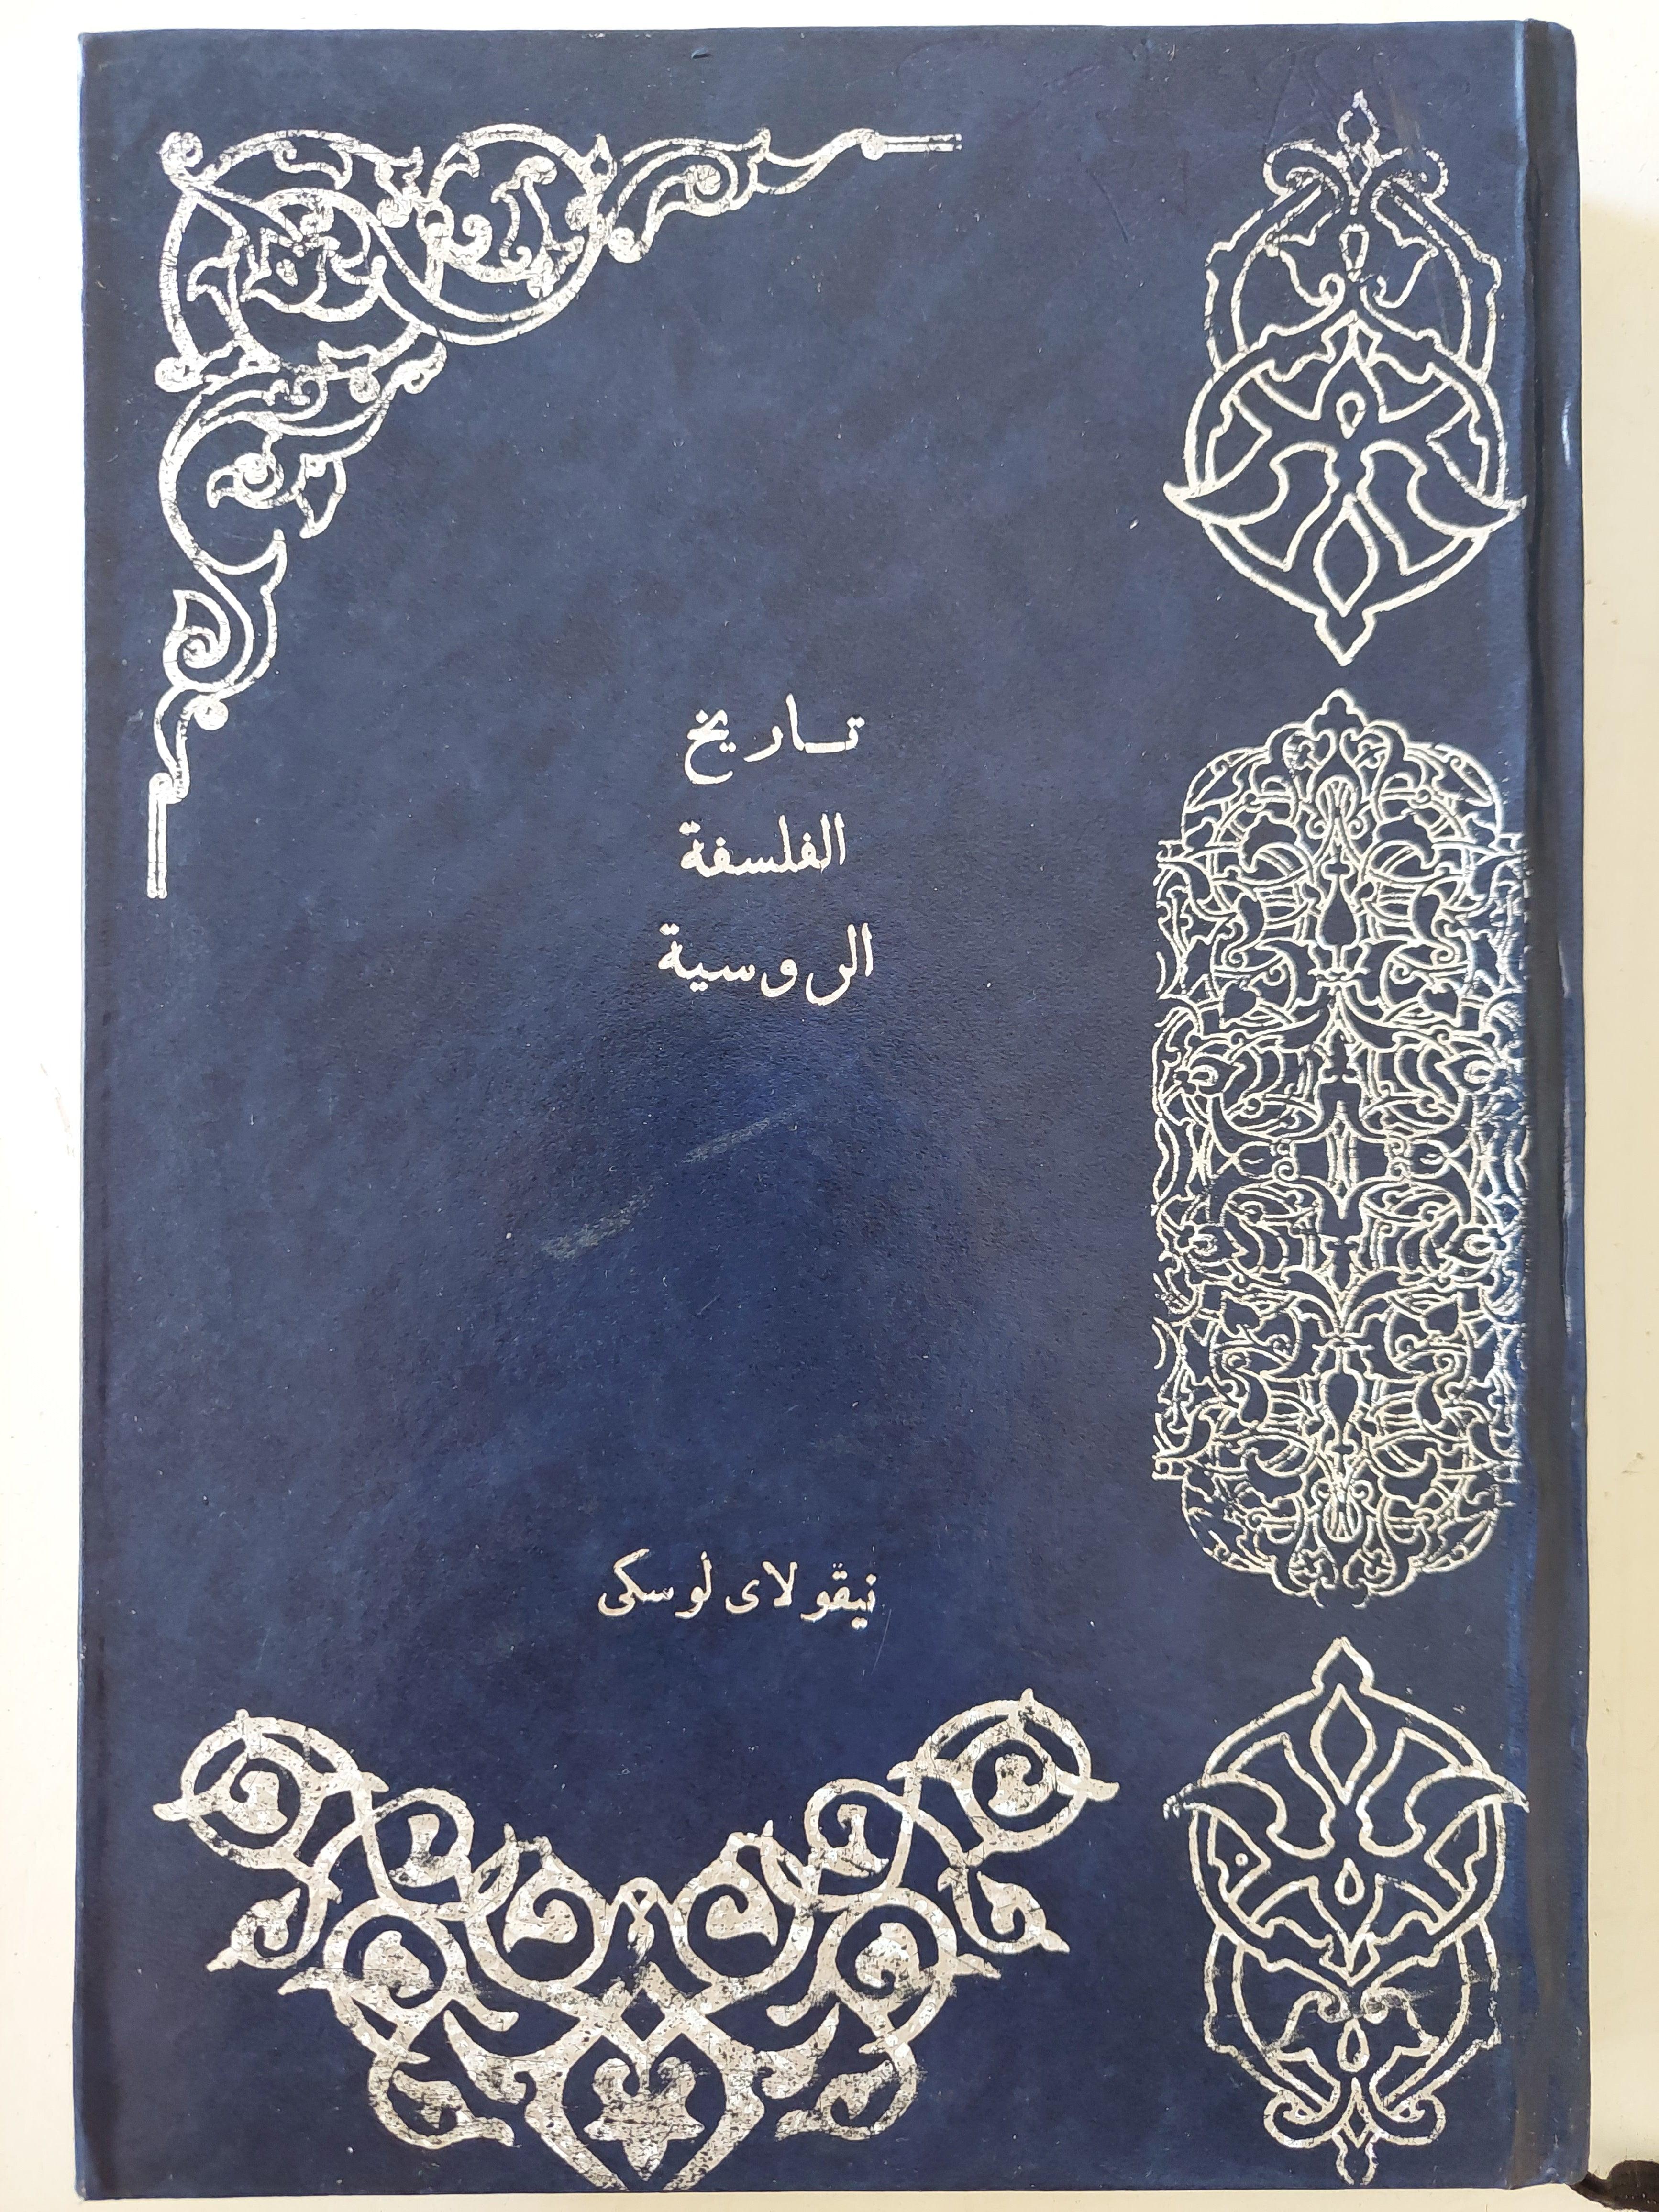 تاريخ
الفلسفة
الروسية
نيقولاى لوسكى